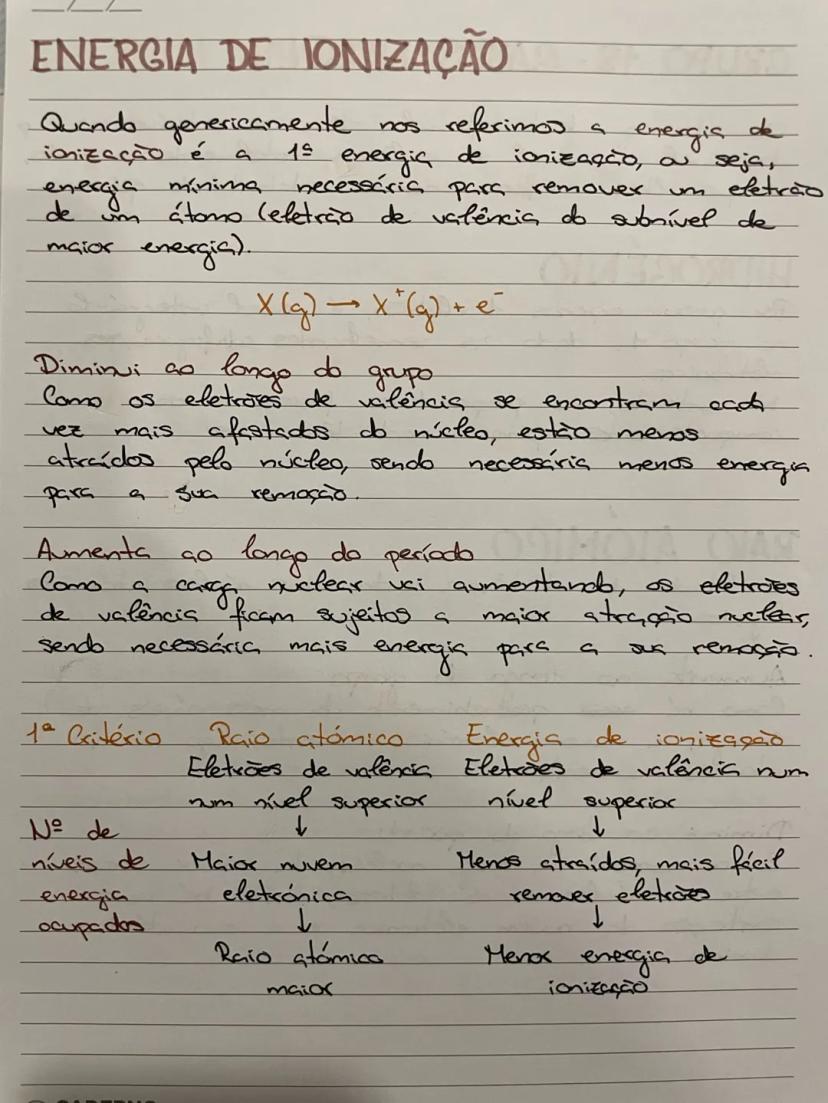 ENERGIA DE IONIZAÇÃO
Quando genericamente nos referimos a energia de
ionização é a 1ª energia de ionização, ou seja,
energia mínima necessária para remover um eletrão
de um átomo (eletrão de valência do subnível de
maior energia).
X(g) → X⁺(g) + e⁻
Diminui ao longo do grupo
Como os eletrões de valência se encontram cada
vez mais afastados do núcleo, estão menos
atraídos pelo núcleo, sendo necessária menos energia
para a sua remoção.
Aumenta ao longo do período
Como a carga nuclear vai aumentando, os eletrões
de valência ficam sujeitos a maior atração nuclear,
sendo necessária mais energia para a sua remoção.
1ª Critério Raio atómico Energia de ionização
Eletrões de valência Eletrões de valência num
num nível superior nível superior
Nº de ↓ ↓
níveis de Maior nuvem Menos atraídos, mais fácil
energia eletrónica remover eletrões
ocupados ↓ ↓
Raio atómico Menor energia de
maior ionização